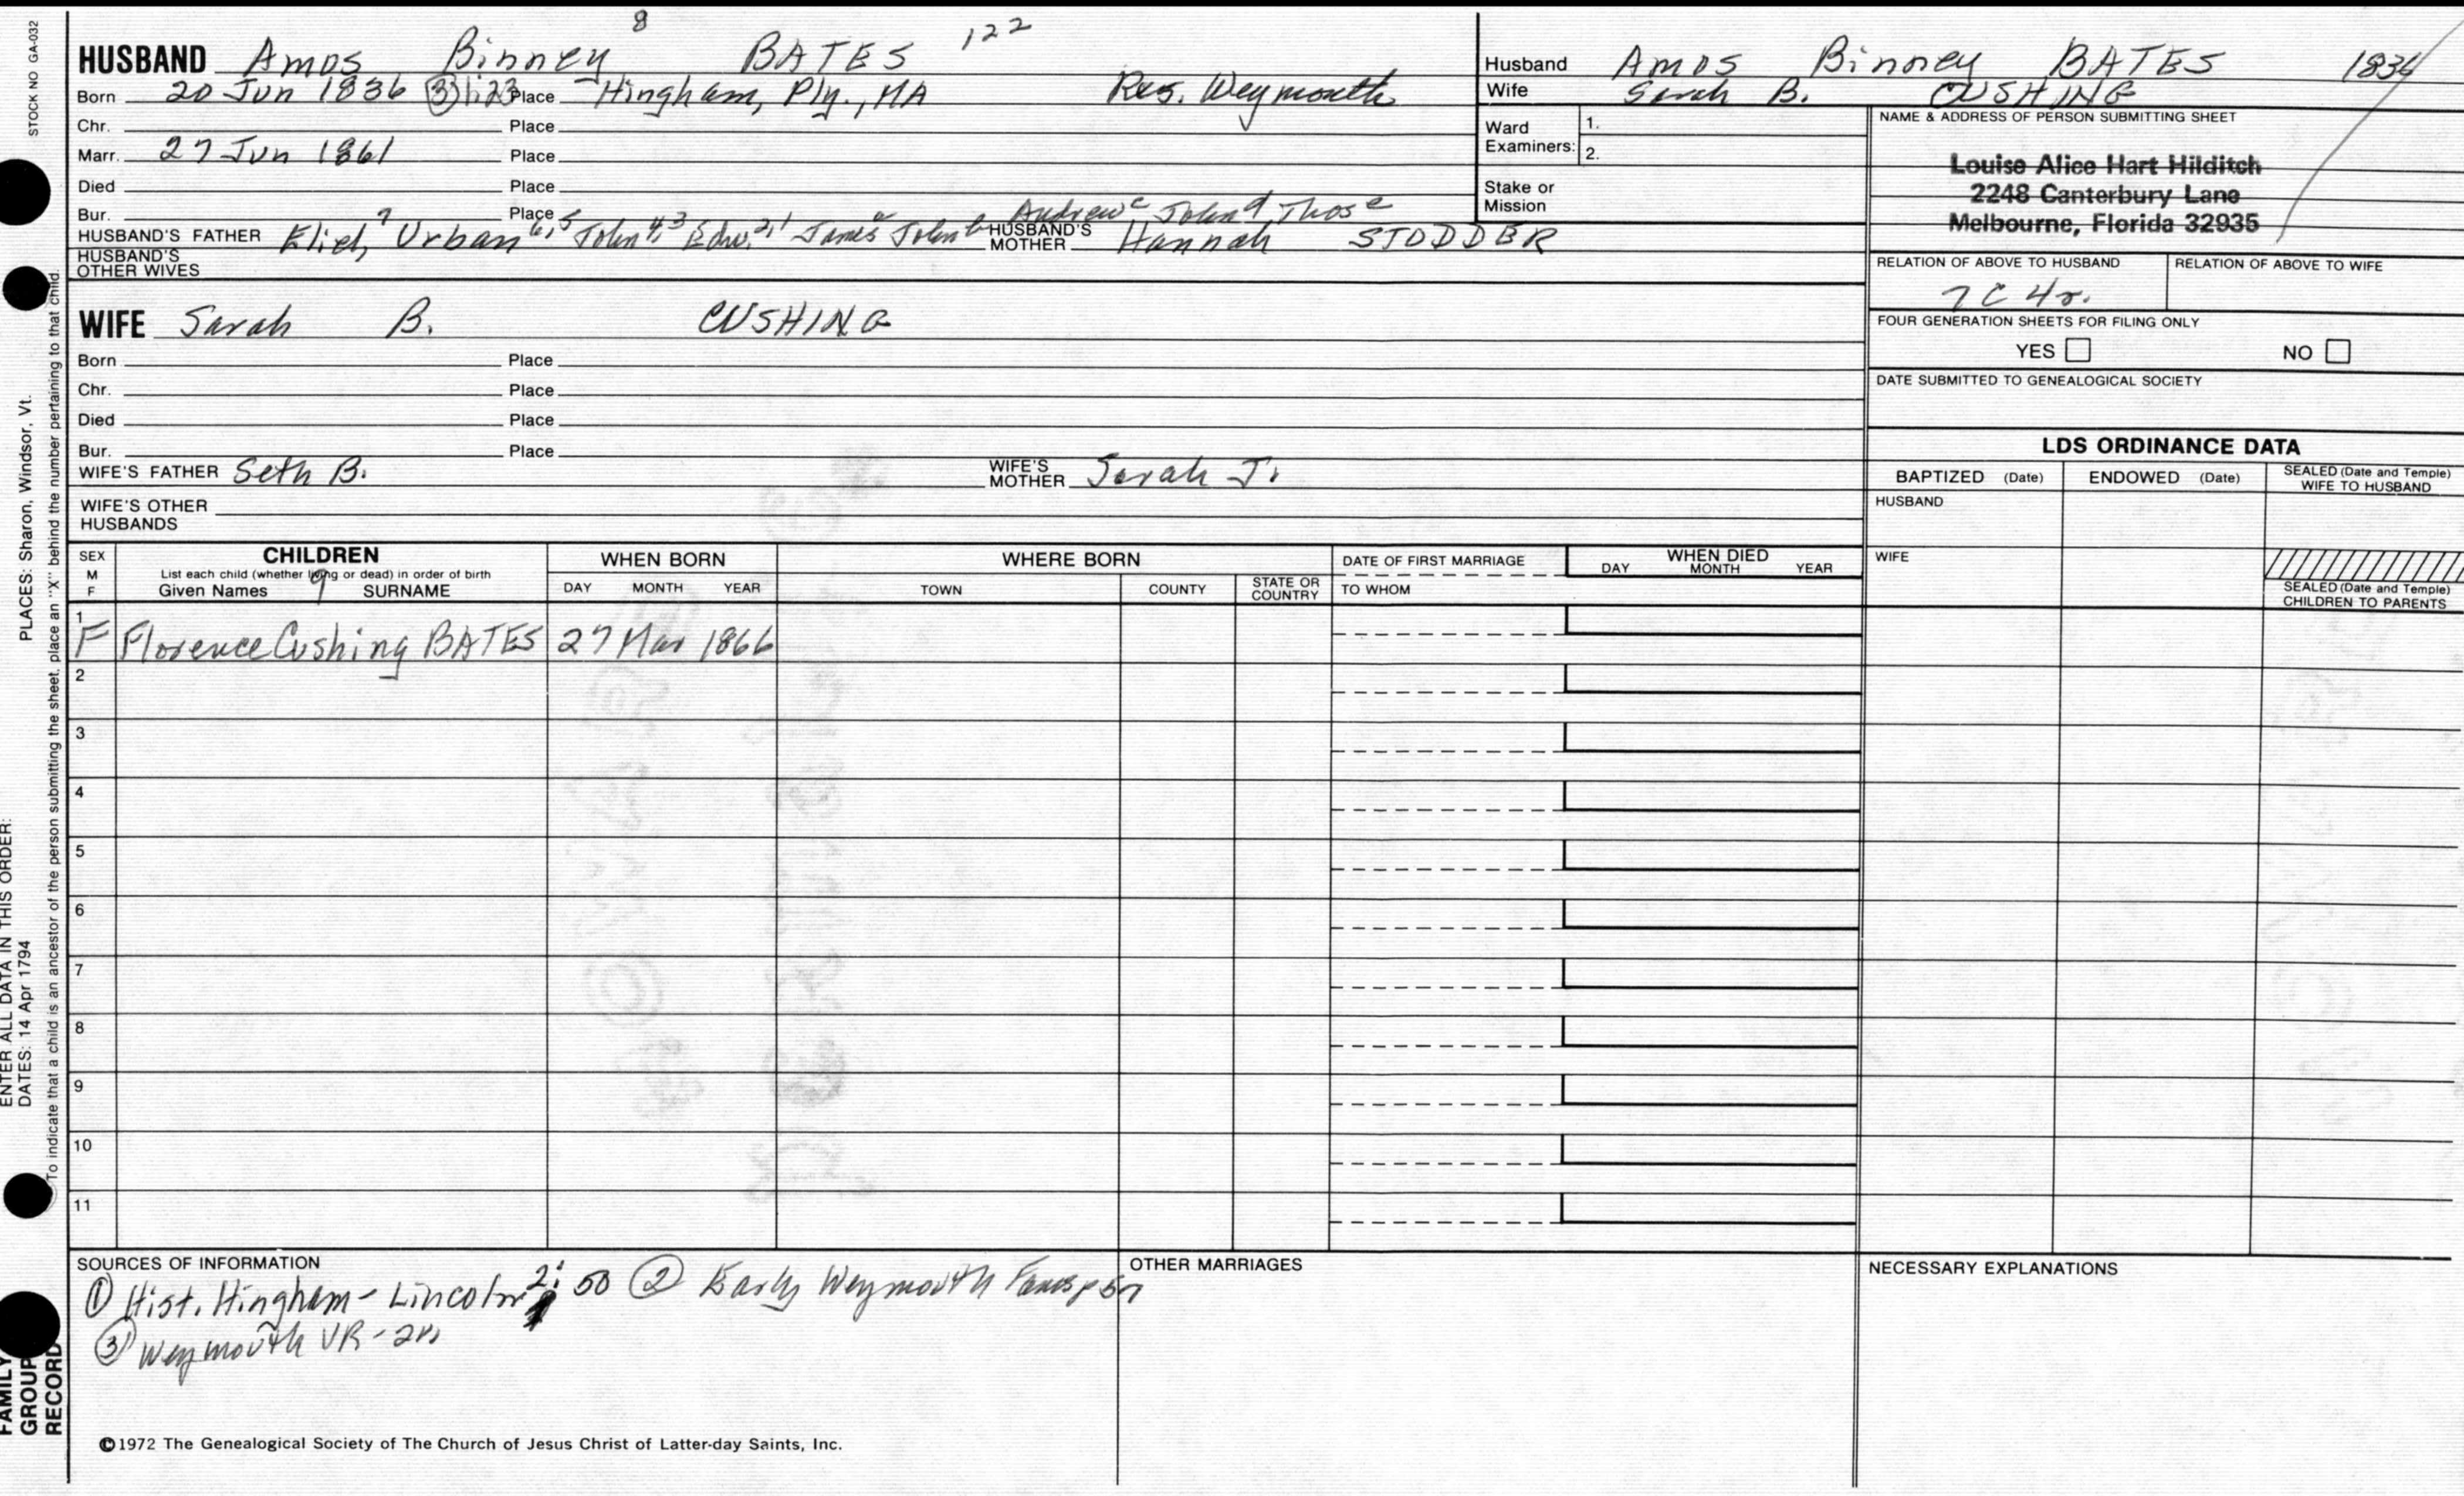 STOCK NO GA-032
HUSBAND Amos Binney 8 BATES 122
Born 20 Jun 1836 ③ 1:23 Place Hingham, Ply., MA Res. Weymouth
Chr. Place
Marr. 27 Jun 1861 Place
Died Place
Bur. Place Andrew c John d Thos e
HUSBAND'S FATHER Eliel, 7 Urban 6,5 John 4,3 Edw. 2,1 James a John b HUSBAND'S MOTHER Hannah STODDER
HUSBAND'S OTHER WIVES
WIFE Sarah B. CUSHING
Born Place
Chr. Place
Died Place
Bur. Place
WIFE'S FATHER Seth B. WIFE'S MOTHER Sarah J.
WIFE'S OTHER HUSBANDS
Husband Amos Binney BATES 1836
Wife Sarah B. CUSHING
Ward Examiners: 1.
2.
Stake or Mission
NAME & ADDRESS OF PERSON SUBMITTING SHEET
Louise Alice Hart Hilditch
2248 Canterbury Lane
Melbourne, Florida 32935
RELATION OF ABOVE TO HUSBAND RELATION OF ABOVE TO WIFE
7C 4r.
FOUR GENERATION SHEETS FOR FILING ONLY
YES NO
DATE SUBMITTED TO GENEALOGICAL SOCIETY
LDS ORDINANCE DATA
BAPTIZED (Date) ENDOWED (Date) SEALED (Date and Temple) WIFE TO HUSBAND
HUSBAND
WIFE
SEALED (Date and Temple) CHILDREN TO PARENTS
SEX M F CHILDREN WHEN BORN WHERE BORN DATE OF FIRST MARRIAGE WHEN DIED
List each child (whether living or dead) in order of birth DAY MONTH YEAR
Given Names 9 SURNAME DAY MONTH YEAR TOWN COUNTY STATE OR COUNTRY TO WHOM
1 F Florence Cushing BATES 27 Mar 1866
2
3
4
5
6
7
8
9
10
11
SOURCES OF INFORMATION OTHER MARRIAGES NECESSARY EXPLANATIONS
① Hist. Hingham - Lincoln 2: 50 ② Early Weymouth Fams p 57
③ Weymouth VR -
©1972 The Genealogical Society of The Church of Jesus Christ of Latter-day Saints, Inc.
FAMILY GROUP RECORD
ENTER ALL DATA IN THIS ORDER:
DATES: 14 Apr 1794
PLACES: Sharon, Windsor, Vt.
To indicate that a child is an ancestor of the person submitting the sheet, place an "X" behind the number pertaining to that child.